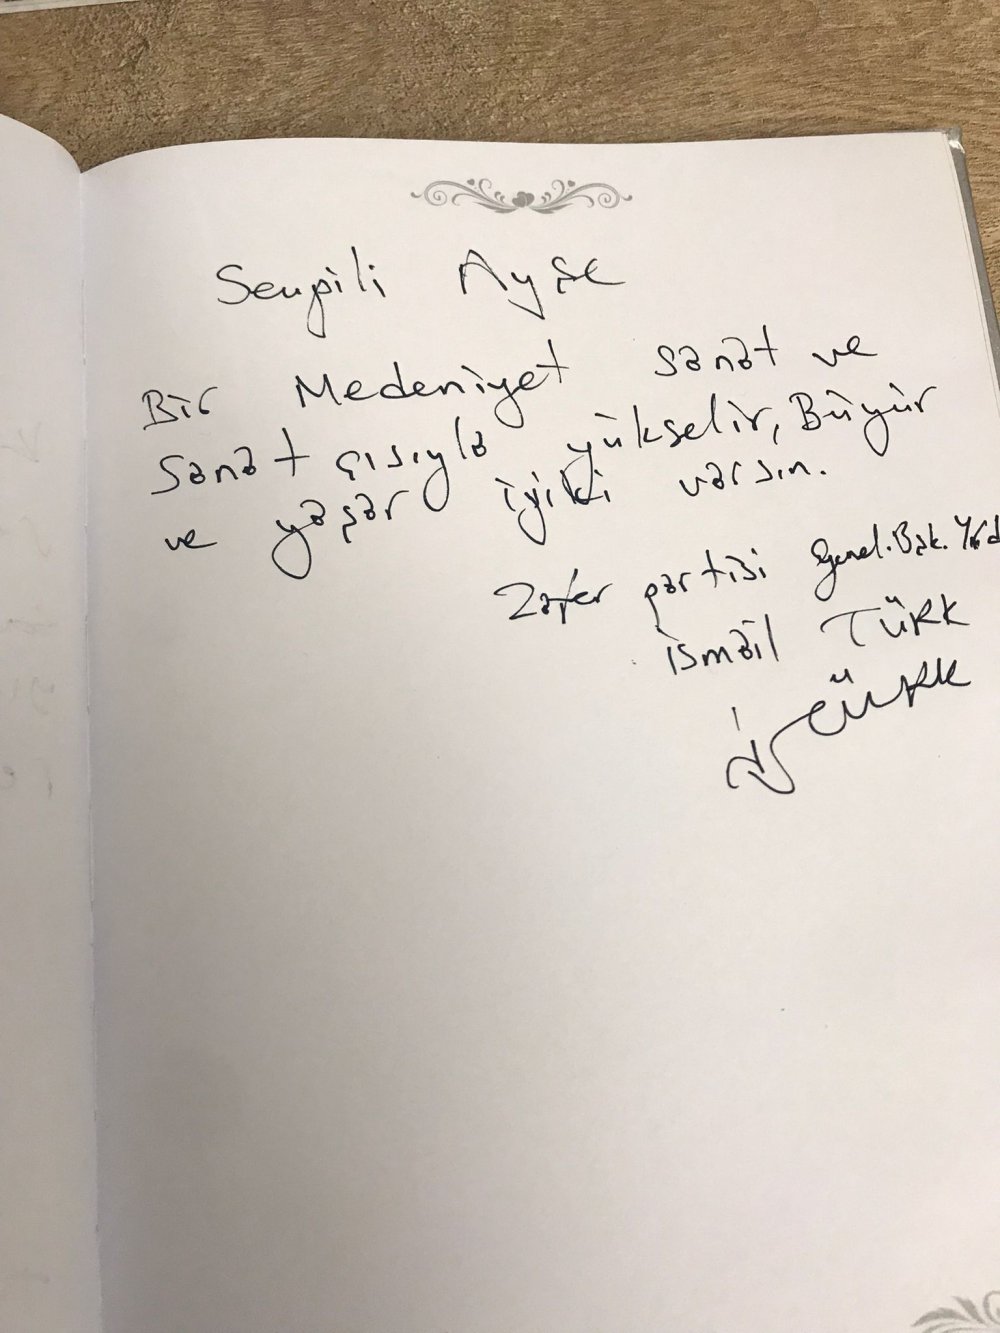 Sevgili Ayşe
Bir Medeniyet sanat ve
sanatçısıyla yükselir, Büyür
ve yaşar iyiki varsın.
Zafer partisi Genel.Bşk.Yrd
ismail Türk